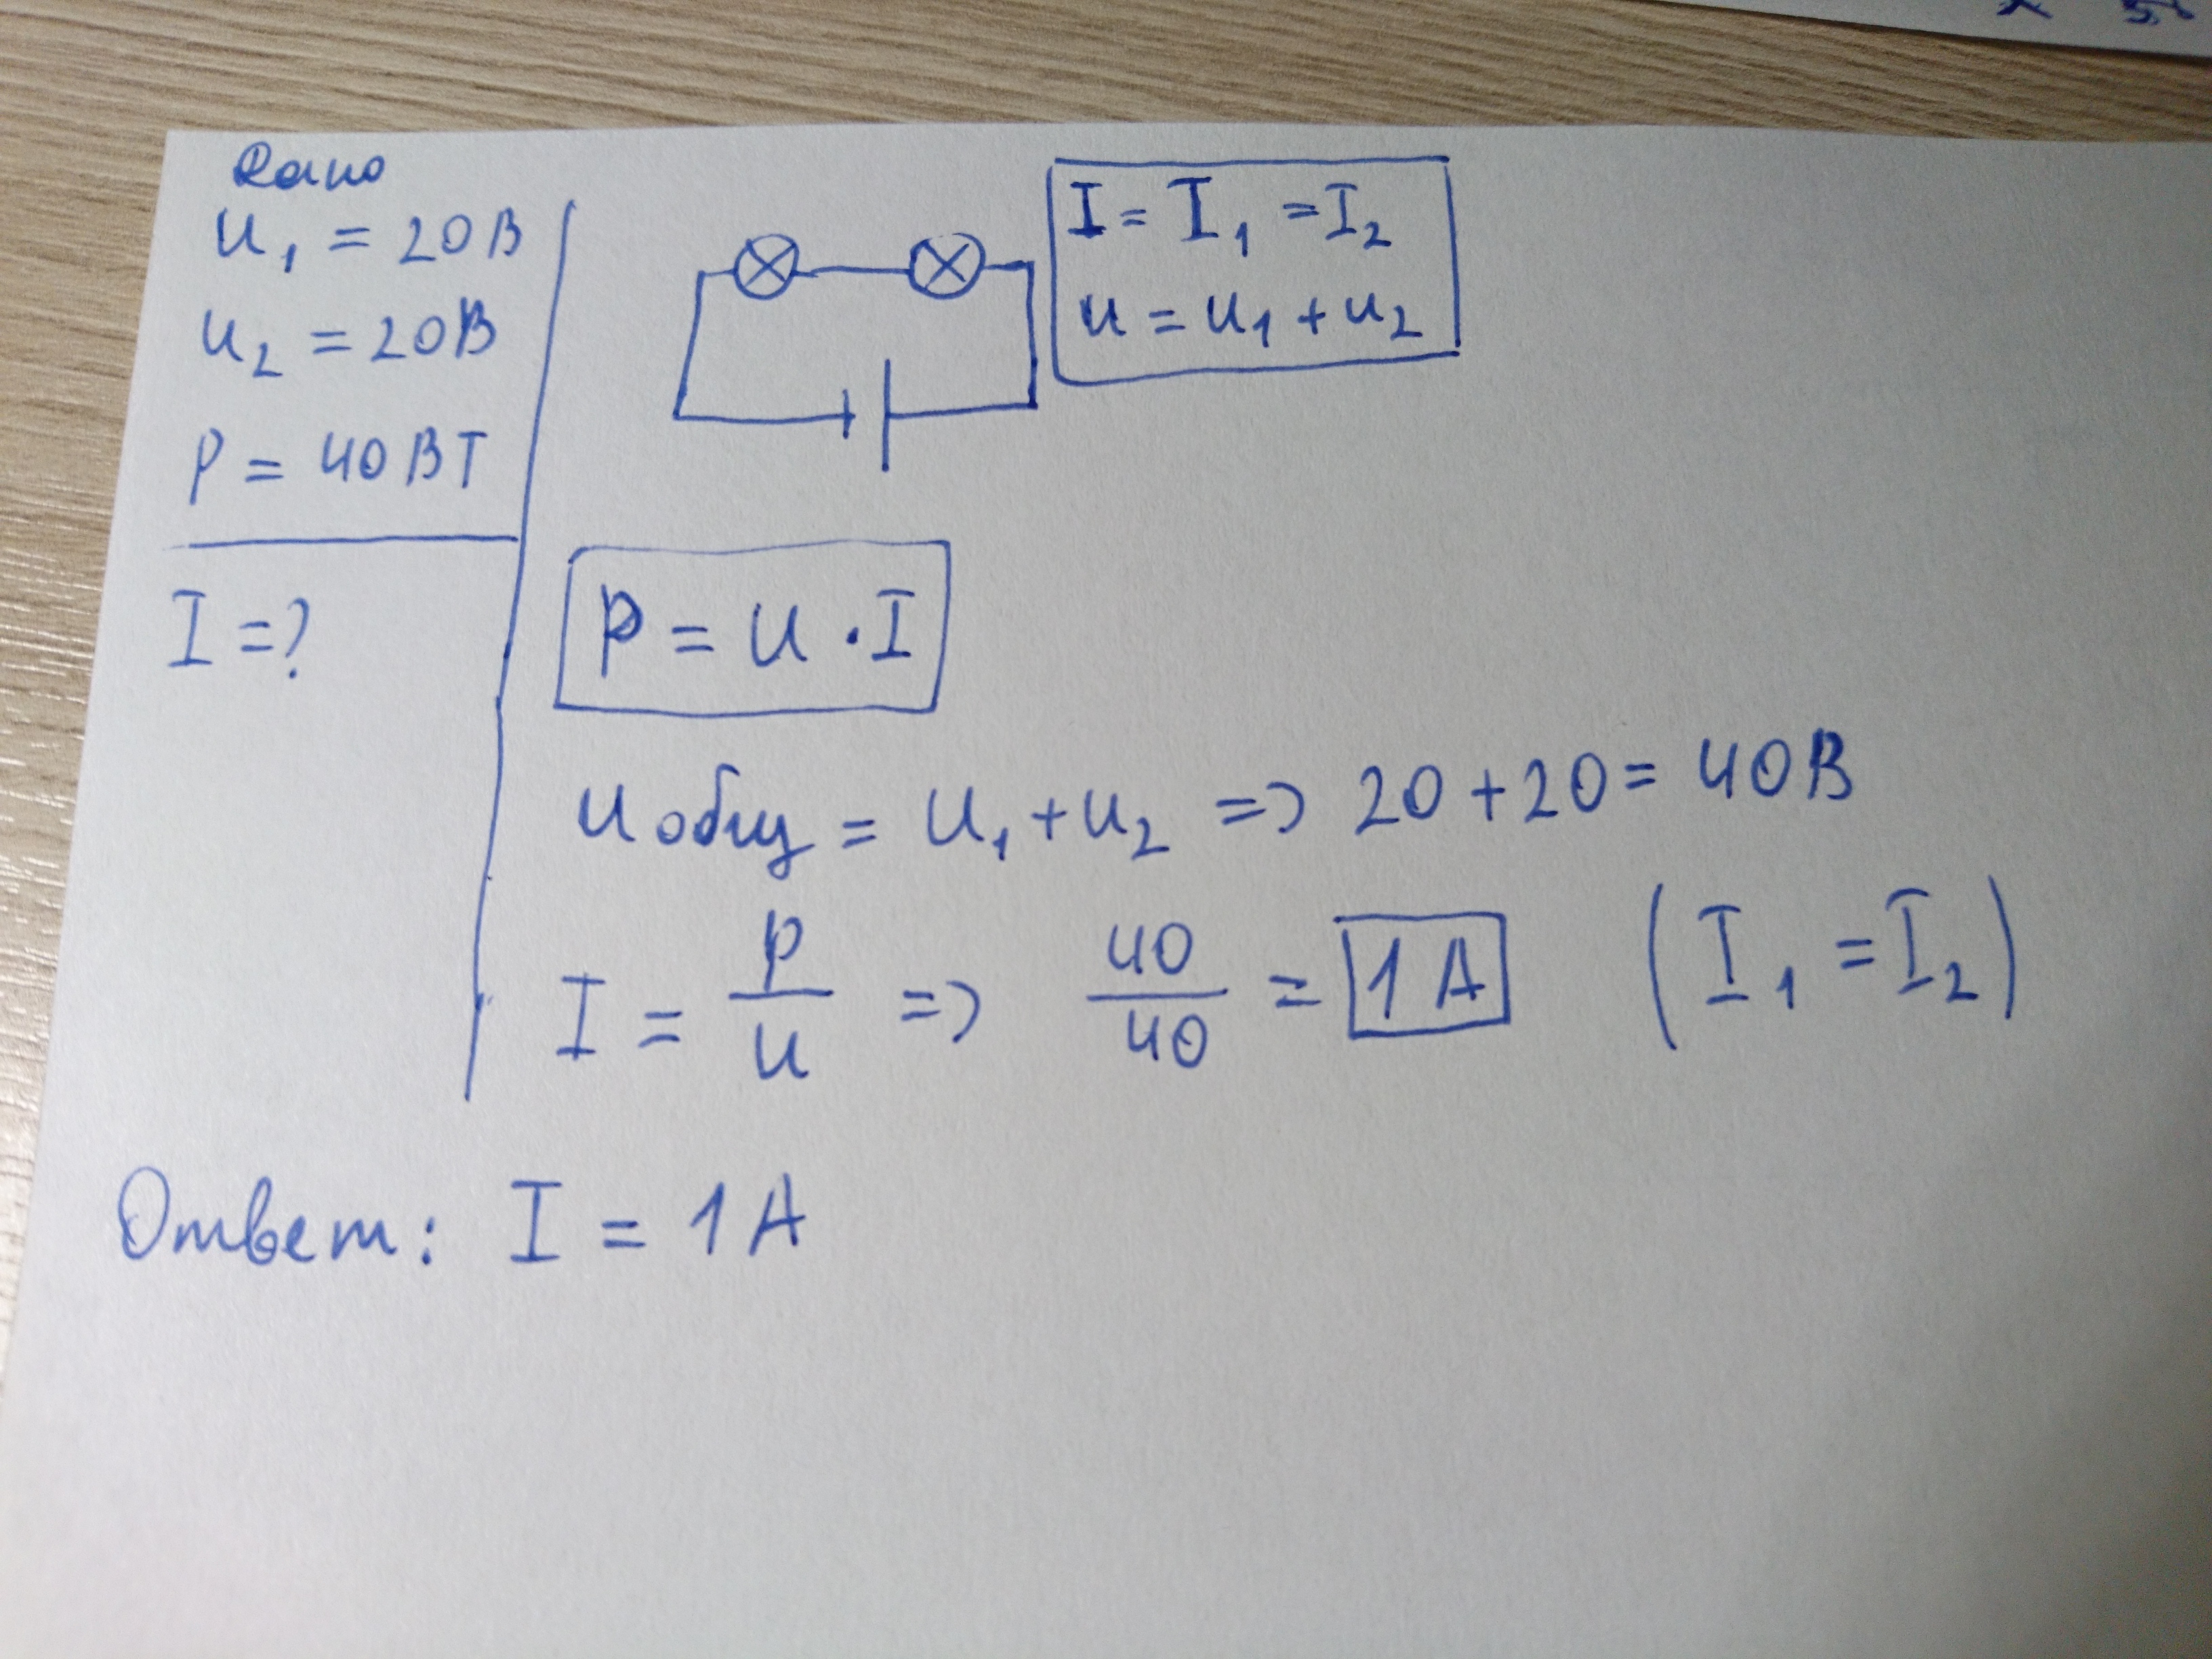 Дано
U₁ = 20В
U₂ = 20В
P = 40ВТ
I = ?
I = I₁ = I₂
U = U₁ + U₂
P = U · I
Uобщ = U₁ + U₂ => 20 + 20 = 40В
I = P/U => 40/40 = 1А (I₁ = I₂)
Ответ: I = 1А